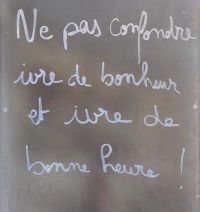 Ne pas confondre
ivre de bonheur
et ivre de
bonne heure !